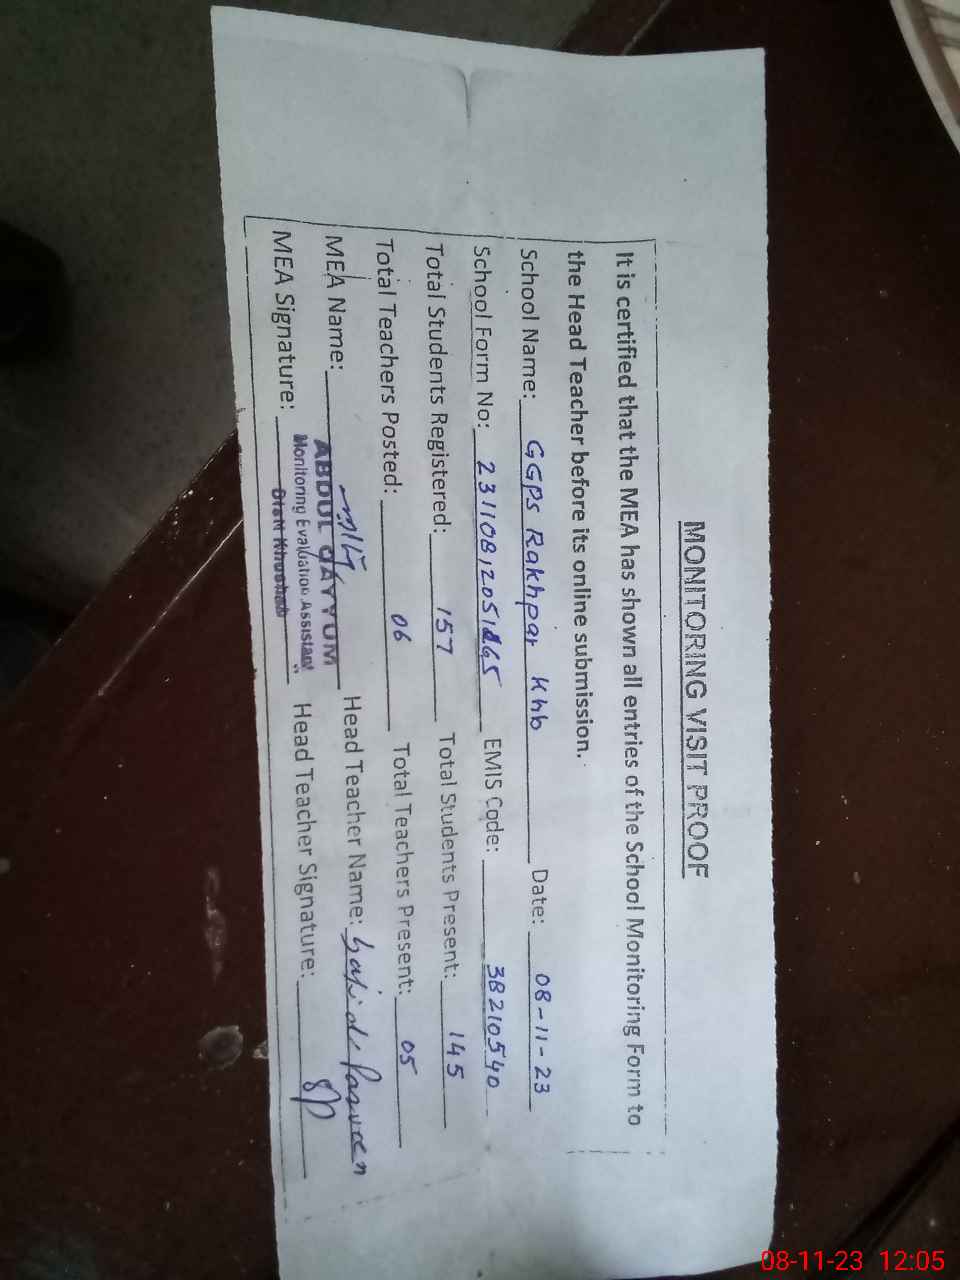 MONITORING VISIT PROOF
It is certified that the MEA has shown all entries of the School Monitoring Form to
the Head Teacher before its online submission.
School Name: GGPS Rakhpar Khb Date: 08-11-23
School Form No: EMIS Code: 38210540
Total Students Registered: 157 Total Students Present: 145
Total Teachers Posted: 06 Total Teachers Present: 05
MEA Name: ABDUL QAYYUM Head Teacher Name: Parveen
Monitoring Evaluation Assistant
MEA Signature: Distt Khushab Head Teacher Signature: SP
08-11-23 12:05